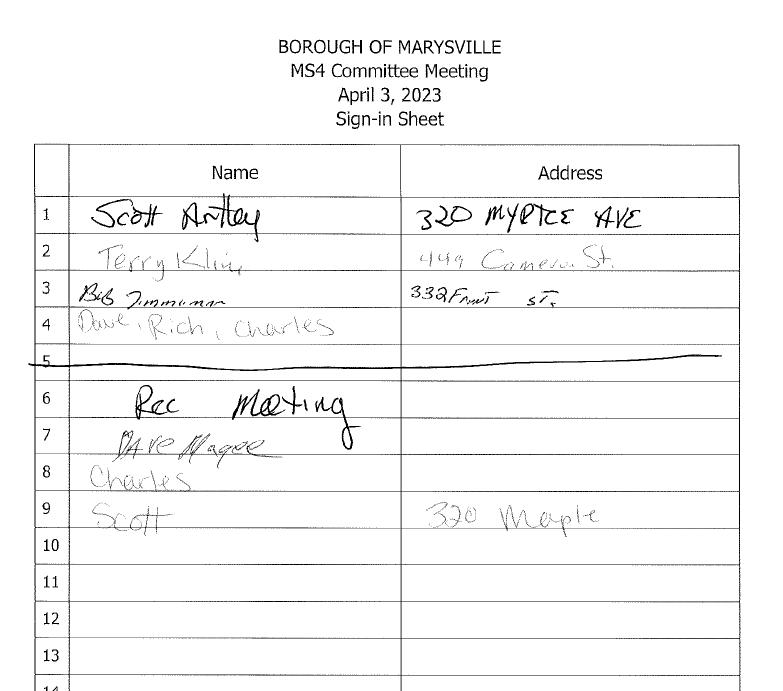 BOROUGH OF MARYSVILLE
MS4 Committee Meeting
April 3, 2023
Sign-in Sheet
Name Address
1 Scott 320 AVE
2 Terry Kline 449 Cameron St.
3 Bob Zimmerman 332 Front ST.
4 Dave, Rich, Charles
5
6 Rec Meeting
7 DAVE Magee
8 Charles
9 Scott 320 Maple
10
11
12
13
14